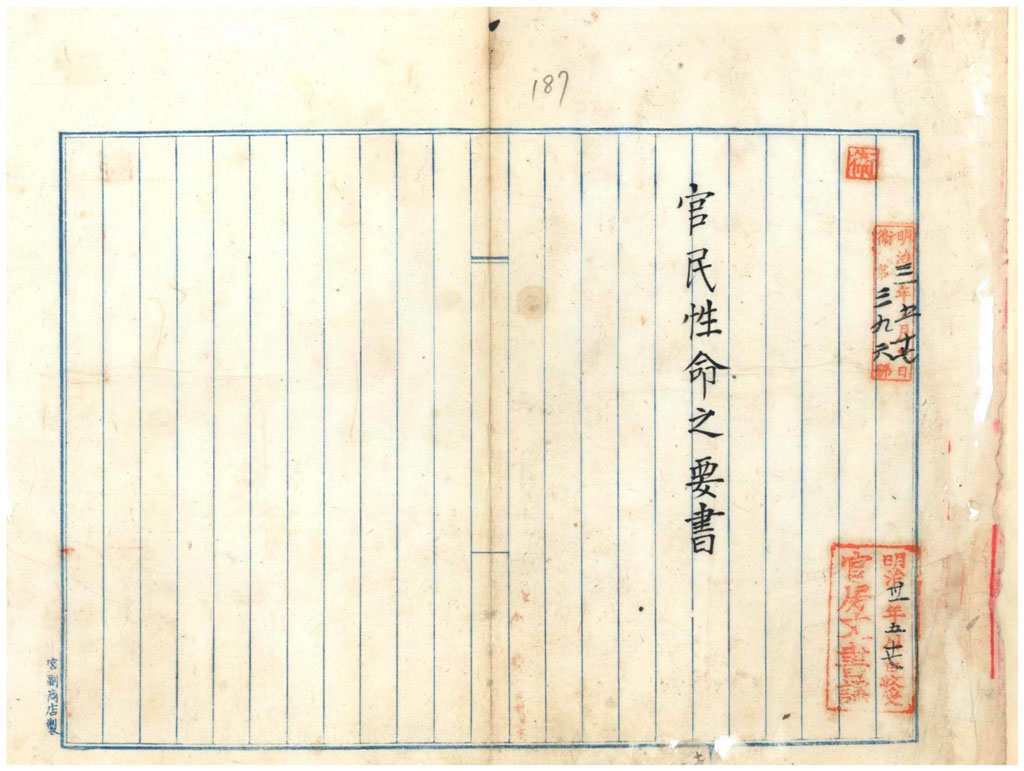 187
衛
明治三年五月十七日
衛第三九六號
官民性命之要書
明治卅一年五月十七日收受
官房文書課
宮副商店製